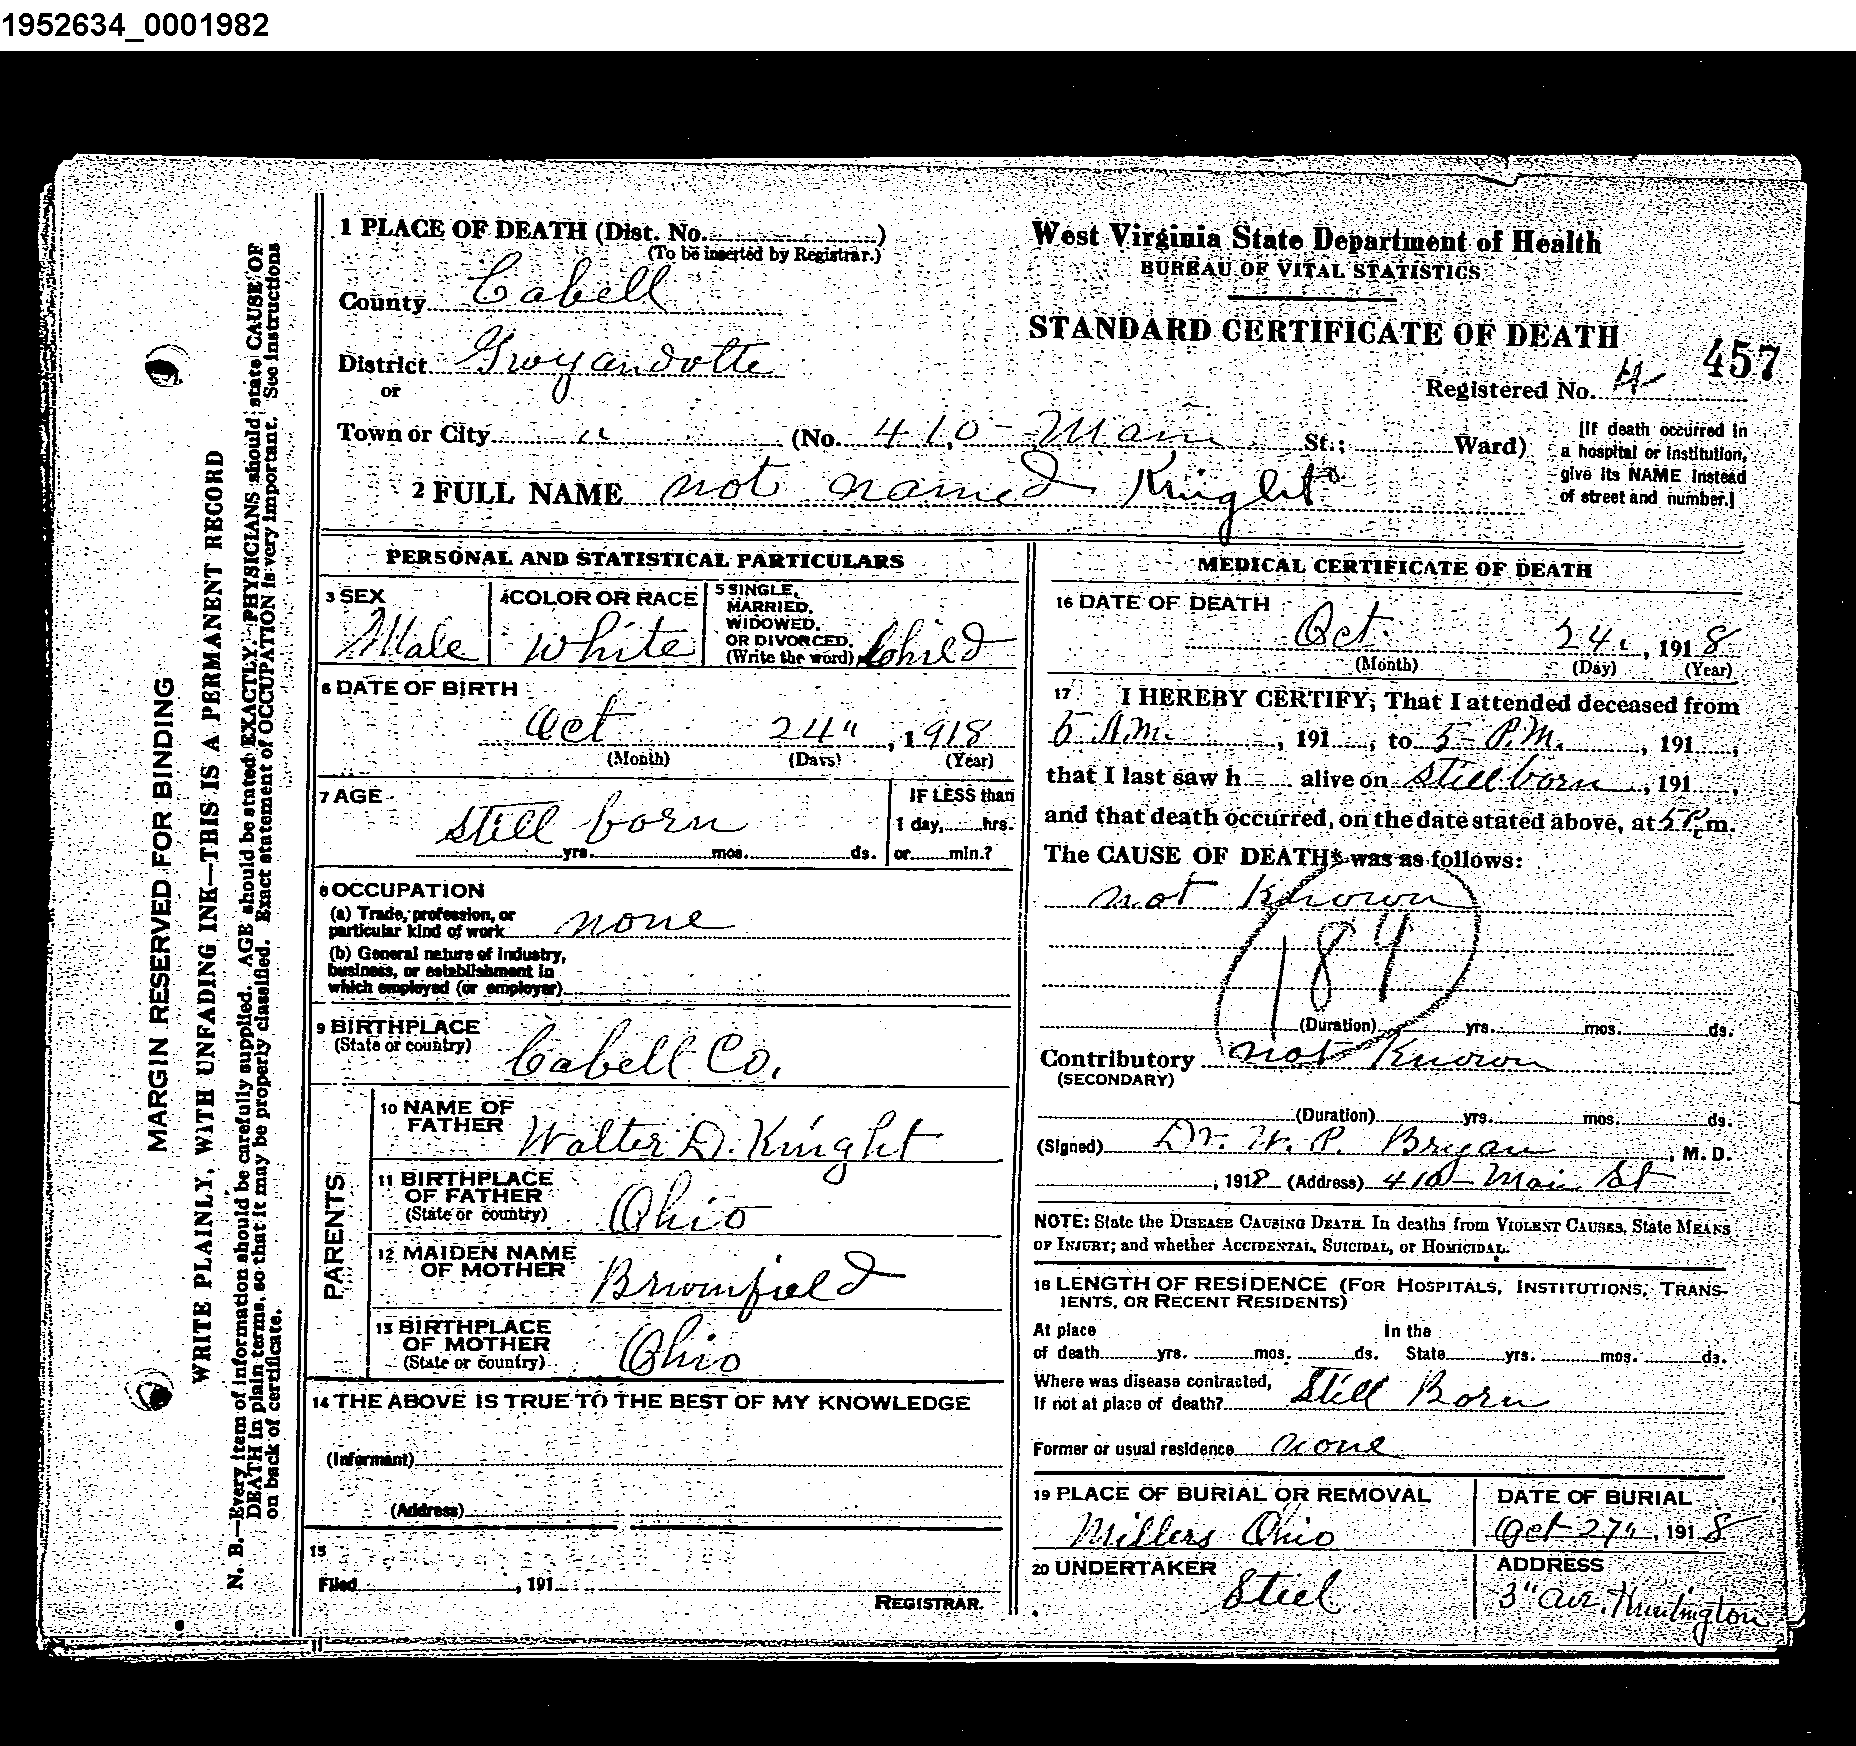 1952634_0001982
1 PLACE OF DEATH (Dist. No. )
(To be inserted by Registrar.)
County Cabell
District Gwyandotte
or
Town or City " (No. 410 - Main St.; Ward)
2 FULL NAME not named Knight
West Virginia State Department of Health
BUREAU OF VITAL STATISTICS
STANDARD CERTIFICATE OF DEATH
457
Registered No.
[If death occurred in
a hospital or institution,
give its NAME instead
of street and number.]
MARGIN RESERVED FOR BINDING
WRITE PLAINLY, WITH UNFADING INK—THIS IS A PERMANENT RECORD
N. B.—Every item of information should be carefully supplied. AGE should be stated EXACTLY. PHYSICIANS should state CAUSE OF
DEATH in plain terms, so that it may be properly classified. Exact statement of OCCUPATION is very important. See instructions
on back of certificate.
PERSONAL AND STATISTICAL PARTICULARS
3 SEX
Male
4 COLOR OR RACE
White
5 SINGLE,
MARRIED,
WIDOWED,
OR DIVORCED,
(Write the word) Child
6 DATE OF BIRTH
Oct 24", 1918
(Month) (Days) (Year)
7 AGE
still born
yrs. mos. ds.
IF LESS than
1 day, hrs.
or min.?
8 OCCUPATION
(a) Trade, profession, or
particular kind of work none
(b) General nature of industry,
business, or establishment in
which employed (or employer)
9 BIRTHPLACE
(State or country) Cabell Co.
PARENTS
10 NAME OF
FATHER Walter D. Knight
11 BIRTHPLACE
OF FATHER
(State or country) Ohio
12 MAIDEN NAME
OF MOTHER Brumfield
13 BIRTHPLACE
OF MOTHER
(State or country) Ohio
14 THE ABOVE IS TRUE TO THE BEST OF MY KNOWLEDGE
(Informant)
(Address)
15
Filed , 191
REGISTRAR.
MEDICAL CERTIFICATE OF DEATH
16 DATE OF DEATH
Oct. 24", 1918
(Month) (Day) (Year)
17 I HEREBY CERTIFY, That I attended deceased from
5 A.M. , 191 , to 5 - P.M. , 191 ,
that I last saw h alive on still born , 191 ,
and that death occurred, on the date stated above, at 5 P. m.
The CAUSE OF DEATH* was as follows:
not known
184
(Duration) yrs. mos. ds.
Contributory not known
(SECONDARY)
(Duration) yrs. mos. ds.
(Signed) Dr. W. P. Bryan , M. D.
, 1918 (Address) 410 - Main St
NOTE: State the DISEASE CAUSING DEATH. In deaths from VIOLENT CAUSES, State MEANS
OF INJURY; and whether ACCIDENTAL, SUICIDAL, or HOMICIDAL.
18 LENGTH OF RESIDENCE (FOR HOSPITALS, INSTITUTIONS, TRANS-
IENTS, OR RECENT RESIDENTS)
At place In the
of death yrs. mos. ds. State yrs. mos. ds.
Where was disease contracted,
If not at place of death? Still Born
Former or usual residence none
19 PLACE OF BURIAL OR REMOVAL
Millers Ohio
DATE OF BURIAL
Oct 27", 1918
20 UNDERTAKER
Steel
ADDRESS
3" Ave. Huntington